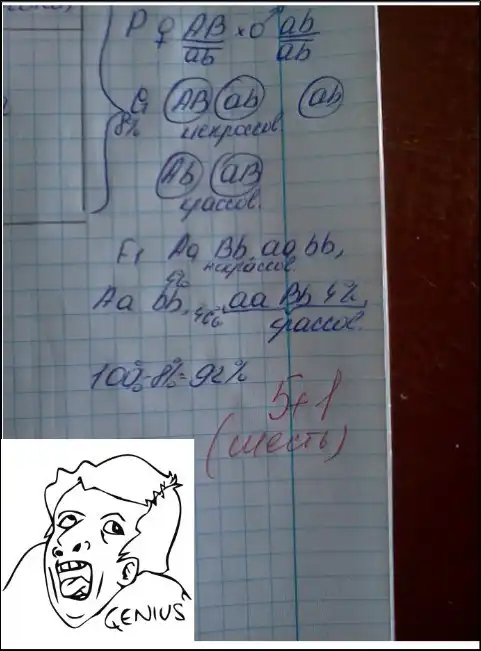 P ♀ AB/ab × ♂ ab/ab
G AB ab ab
8%
некроссов.
Ab aB
кроссов.
F1 Aa Bb, aa bb,
некроссов.
4%
Aa bb, aa Bb 4%,
кроссов.
100%-8%=92%
5+1
(шесть)
GENIUS